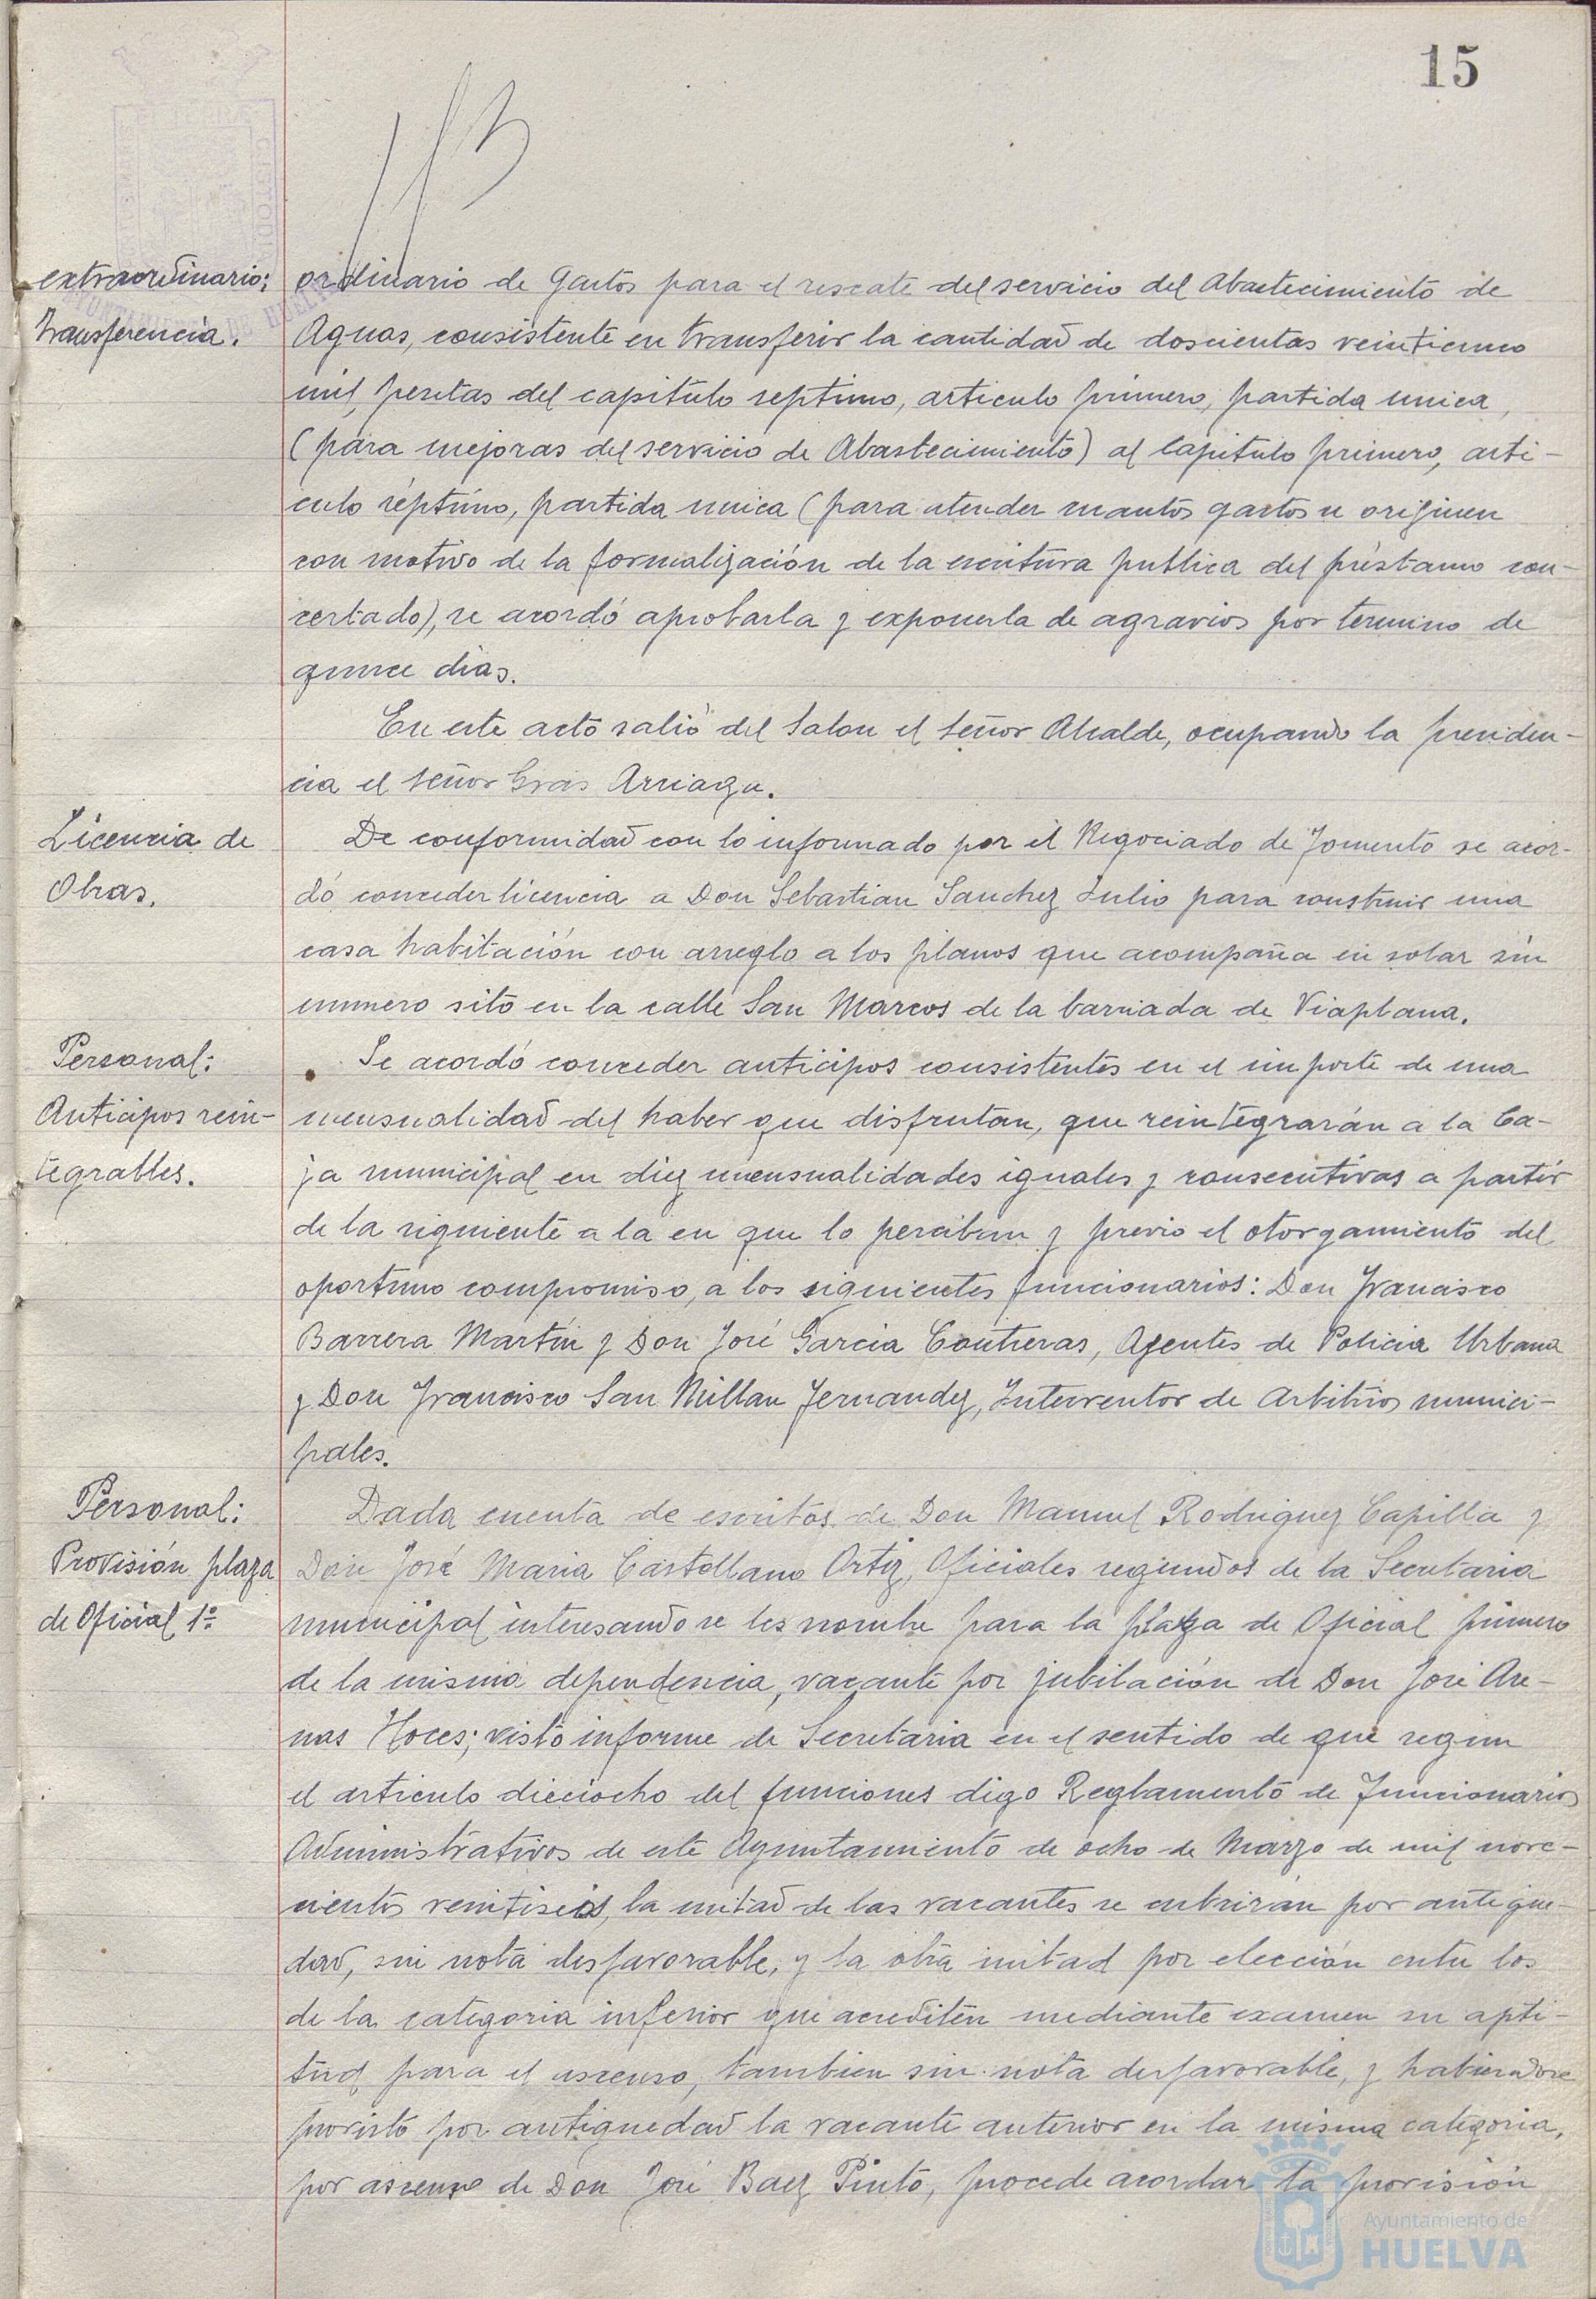 15
extraordinario:
Transferencia.
ordinario de Gastos para el rescate del servicio del Abastecimiento de
Aguas, consistente en transferir la cantidad de doscientas veinticinco
mil pesetas del capitulo septimo, articulo primero, partida unica,
(para mejoras del servicio de Abastecimiento) al capitulo primero, arti-
culo séptimo, partida unica (para atender cuantos gastos se originen
con motivo de la formalización de la escritura publica del préstamo con-
certado), se acordó aprobarla y exponerla de agravios por termino de
quince dias.
En este acto salió del Salon el Señor Alcalde, ocupando la presiden-
cia el Señor Gras Arriaga.
Licencia de
Obras.
De conformidad con lo informado por el Negociado de Fomento se acor-
dó conceder licencia a Don Sebastian Sanchez Julio para construir una
casa habitación con arreglo a los planos que acompaña en solar sin
numero sito en la calle San Marcos de la barriada de Viaplana.
Personal:
Anticipos rein-
tegrables.
Se acordó conceder anticipos consistentes en el importe de una
mensualidad del haber que disfrutan, que reintegrarán a la Ca-
ja municipal en diez mensualidades iguales y consecutivas a partir
de la siguiente a la en que lo perciban y previo el otorgamiento del
oportuno compromiso, a los siguientes funcionarios: Don Francisco
Barrera Martín y Don José Garcia Contreras, Agentes de Policia Urbana
y Don Francisco San Millan Fernandez, Interventor de Arbitrios munici-
pales.
Personal:
Provisión plaza
de Oficial 1º
Dada cuenta de escritos de Don Manuel Rodriguez Capilla y
Don José Maria Castellano Ortiz, Oficiales segundos de la Secretaria
municipal interesando se les nombre para la plaza de Oficial primero
de la misma dependencia, vacante por jubilación de Don José Are-
nas Hoces; visto informe de Secretaria en el sentido de que segun
el articulo dieciocho del funciones digo Reglamento de Funcionarios
Administrativos de este Ayuntamiento de ocho de Marzo de mil nove-
cientos veintiseis, la mitad de las vacantes se cubrirán por antigue-
dad, sin nota desfavorable, y la otra mitad por elección entre los
de la categoria inferior que acrediten mediante examen su apti-
tud para el ascenso, tambien sin nota desfavorable, y habiendose
provisto por antiguedad la vacante anterior en la misma categoria,
por ascenso de Don José Baez Pinto, procede acordar la provisión
Ayuntamiento de
HUELVA